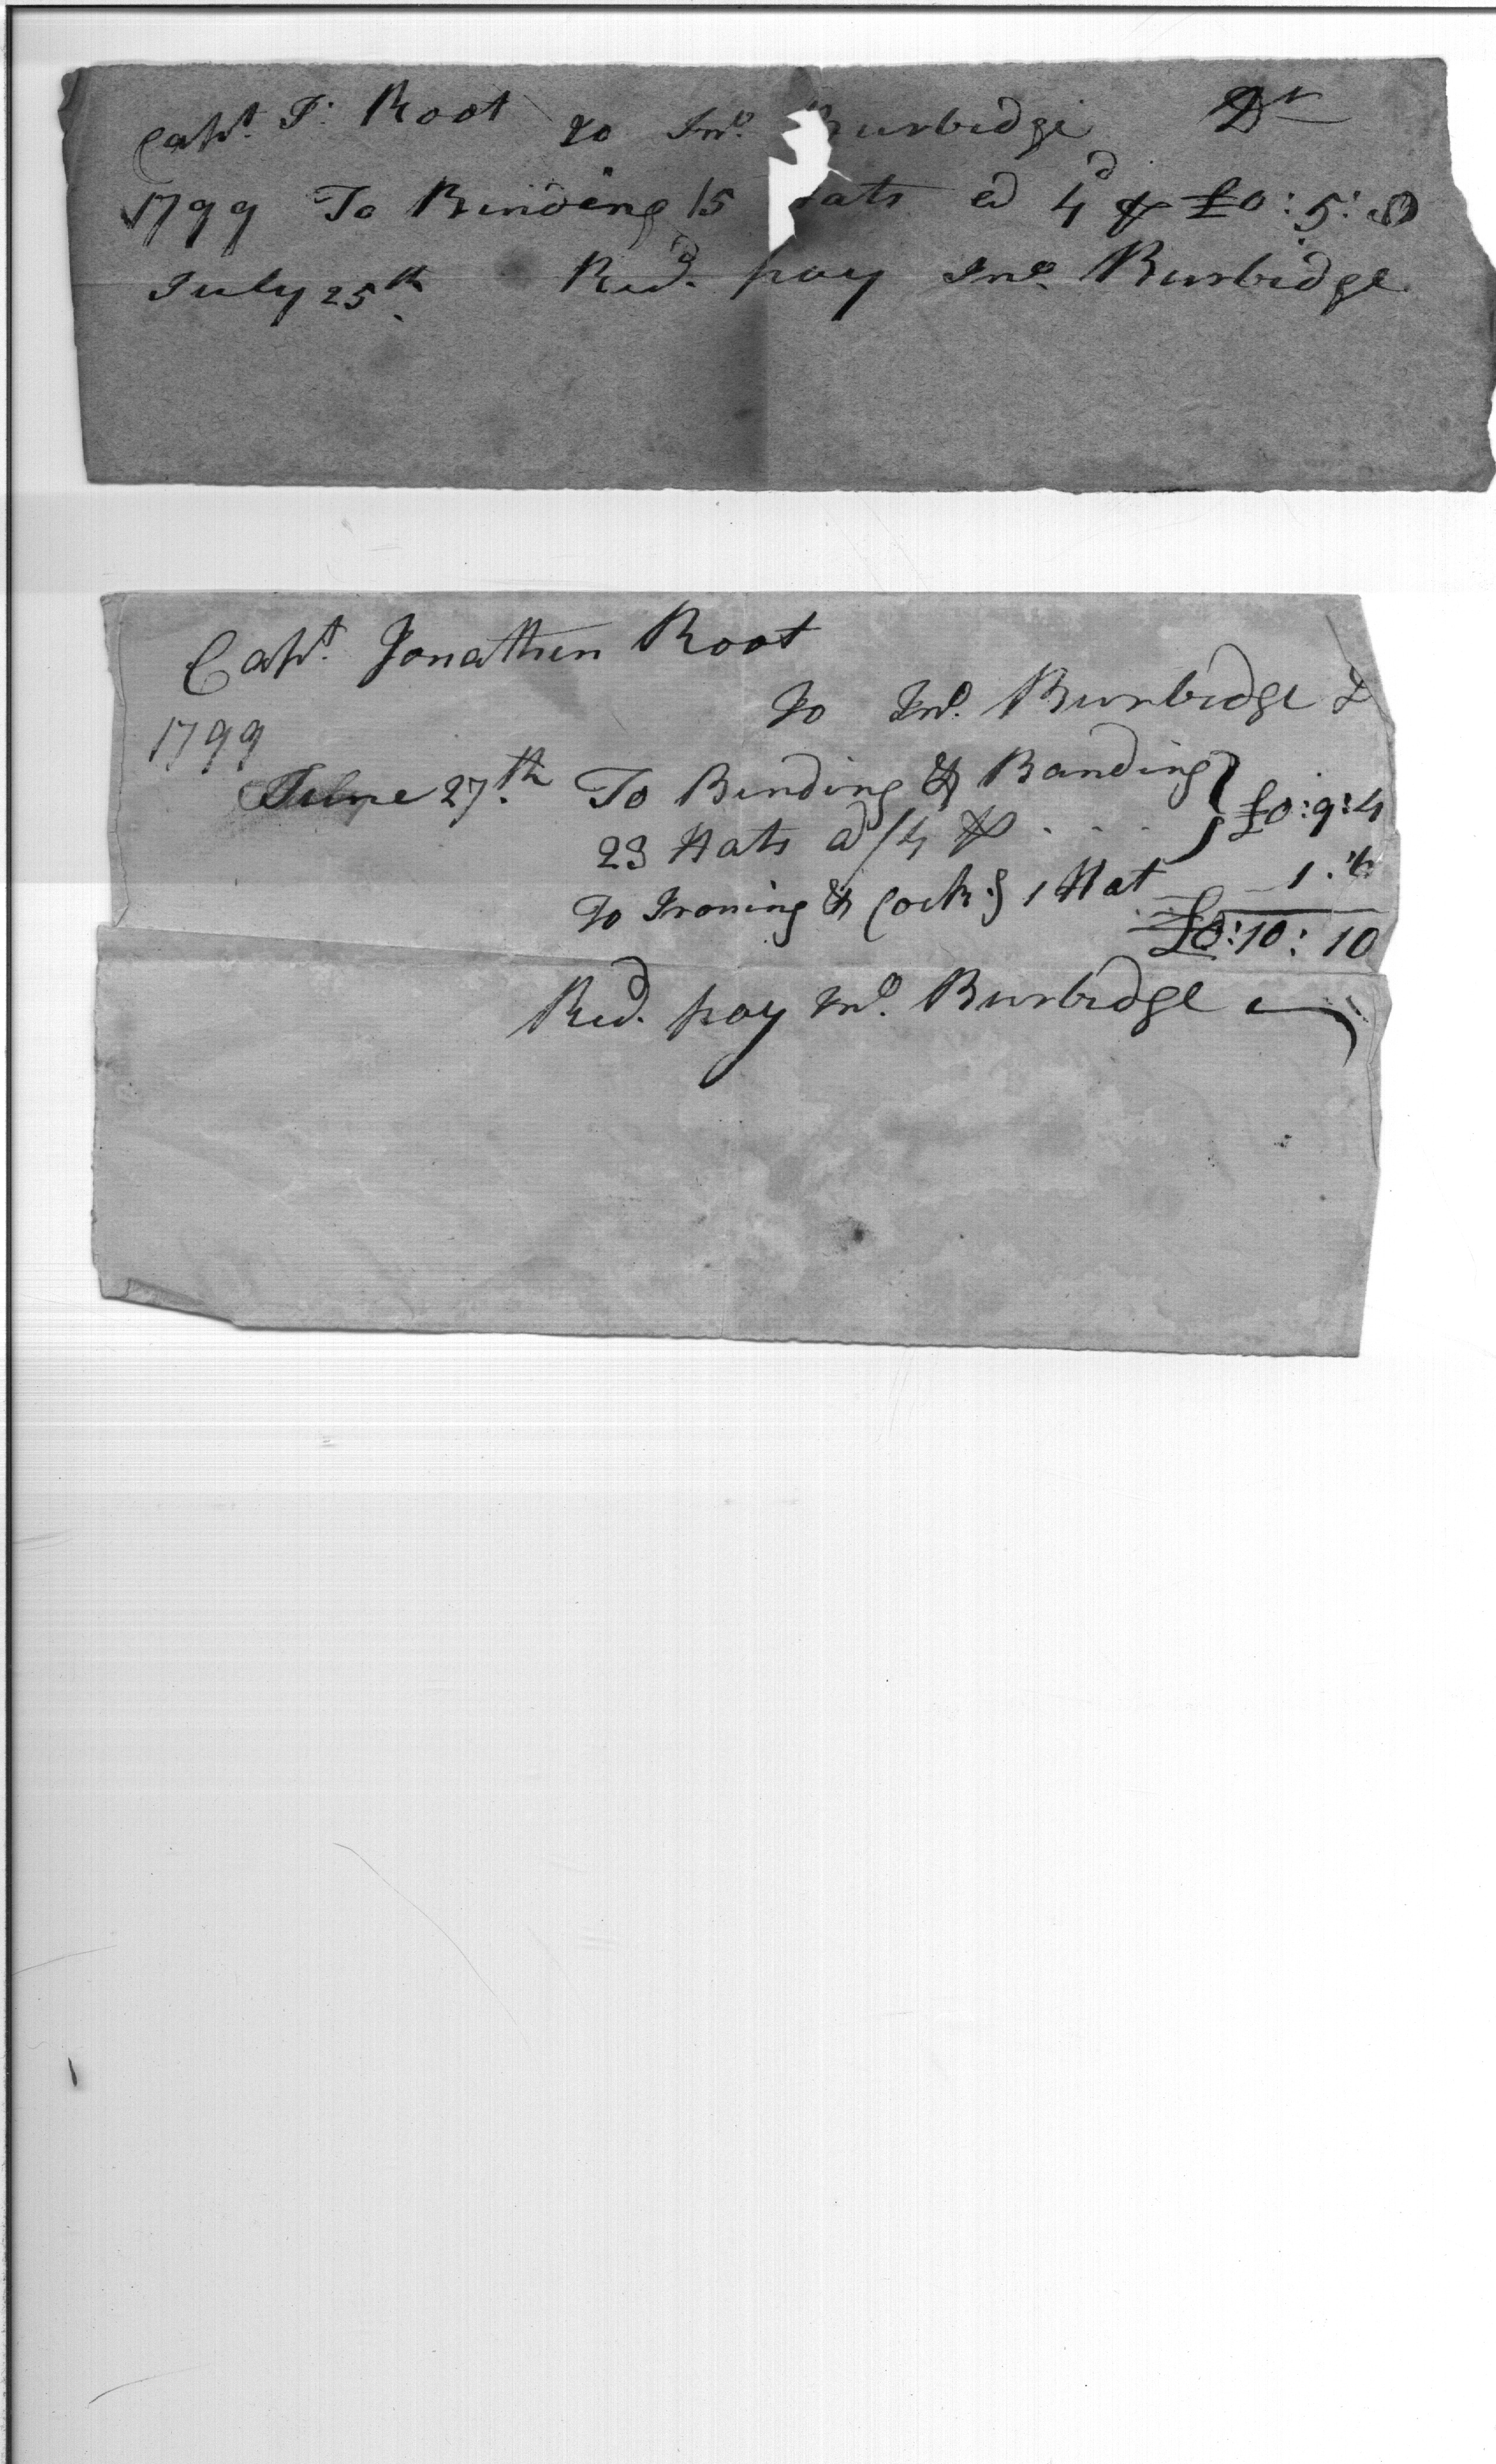 Capt. J. Root to Jno. Burbidge Dr
1799 To Binding 15 ats @ 4d £0:5:0
July 25th Recd. pay Jno. Burbidge
Capt. Jonathen Root
to Jno. Burbidge D
1799
June 27th. To Binding & Banding
23 Hats @ /4 £0:9:4
To Ironing & Cock.g 1 Hat 1:6
£0:10:10
Recd. pay Jno. Burbidge